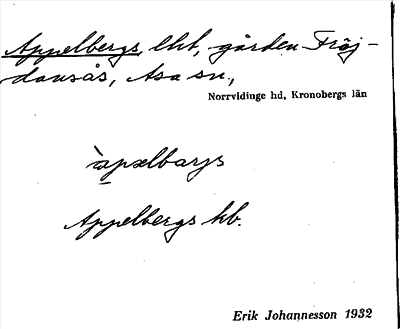 Appelbergs, lht, gården Fröj-
dansås, Asa sn.,
Norrvidinge hd, Kronobergs län
àpælbarys
Appelbergs hb.
Erik Johannesson 1932